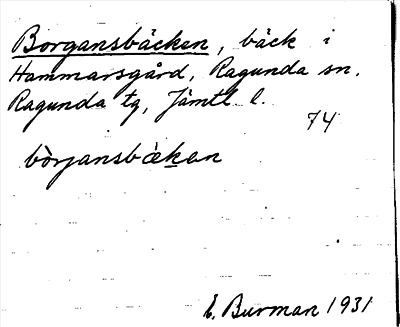 Borgansbäcken, bäck i
Hammarsgård, Ragunda sn.
Ragunda tg, Jämtl. l.
74
bòrjansbæ̀kan
E. Burman 1931